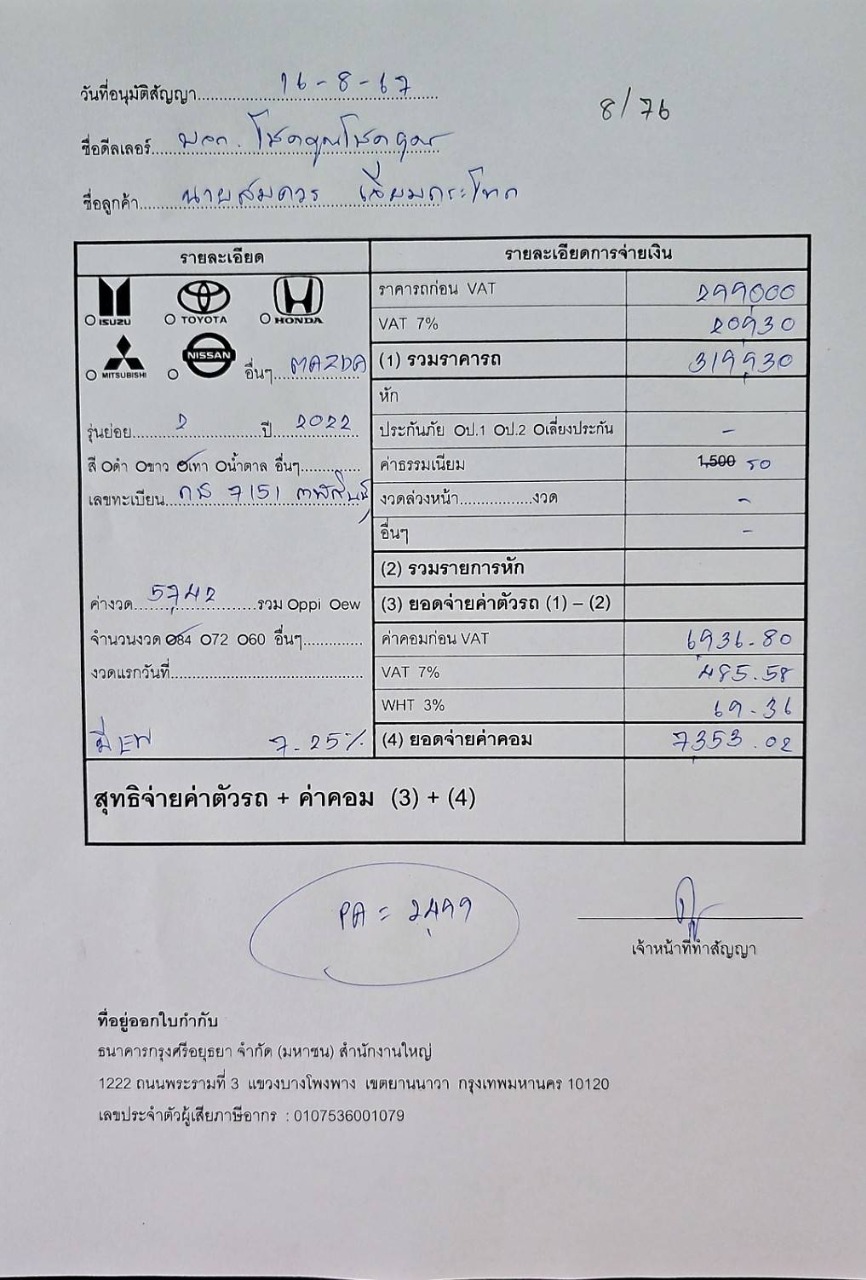 วันที่อนุมัติสัญญา 16-8-67
8/76
ชื่อดีลเลอร์ หจก. โชคคูณโชคคูณ
ชื่อลูกค้า นายสมควร เลี่ยมกระโทก
รายละเอียด รายละเอียดการจ่ายเงิน
ISUZU TOYOTA HONDA
ราคารถก่อน VAT 299000
VAT 7% 20930
MITSUBISHI NISSAN อื่นๆ MAZDA
(1) รวมราคารถ 319,930
หัก
รุ่นย่อย 2 ปี 2022
ประกันภัย Oป.1 Oป.2 Oเลี่ยงประกัน -
สี Oดำ Oขาว Oเทา Oน้ำตาล อื่นๆ
ค่าธรรมเนียม 1,500 50
เลขทะเบียน กธ 7151 กาฬสินธุ์
งวดล่วงหน้า.................งวด -
อื่นๆ -
(2) รวมรายการหัก
ค่างวด 5,742 รวม Oppi Oew
(3) ยอดจ่ายค่าตัวรถ (1) – (2)
จำนวนงวด O84 O72 O60 อื่นๆ
ค่าคอมก่อน VAT 6,936.80
งวดแรกวันที่
VAT 7% 485.58
WHT 3% 69.36
มี EW 7.25%
(4) ยอดจ่ายค่าคอม 7,353.02
สุทธิจ่ายค่าตัวรถ + ค่าคอม (3) + (4)
PA = 2,499
เจ้าหน้าที่ทำสัญญา
ที่อยู่ออกใบกำกับ
ธนาคารกรุงศรีอยุธยา จำกัด (มหาชน) สำนักงานใหญ่
1222 ถนนพระรามที่ 3 แขวงบางโพงพาง เขตยานนาวา กรุงเทพมหานคร 10120
เลขประจำตัวผู้เสียภาษีอากร : 0107536001079